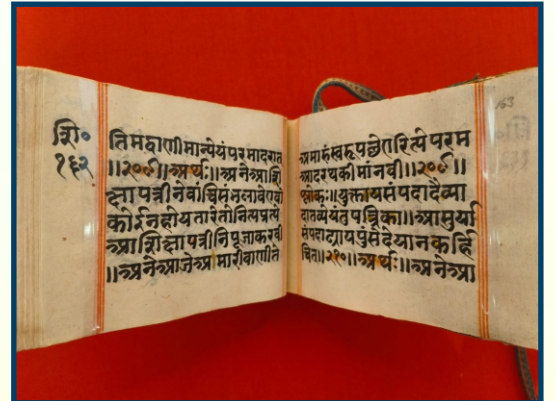 शि॰
१६२
तिमद्वाणीमान्येयंपरमादरात
॥२०९॥अर्थः॥अनेआशि
क्षापत्रीनेवांचिसंभलावेएवो
कोईनहोयतारेतोनित्यप्रत्ये
आशिक्षापत्रीनिपूजाकरवी
॥अनेआजेअमारीवाणीते
163
अमारुंस्वरूपछेएरित्येपरम
आदरथकीमांनवी॥२०९॥
श्लोकः॥युक्तायसंपदादैव्या
दातव्येयंतुपत्रिका॥आसुर्या
संपदाढ्यायपुंसेदेयानकर्हि
चित॥२१०॥अर्थः॥अनेआ